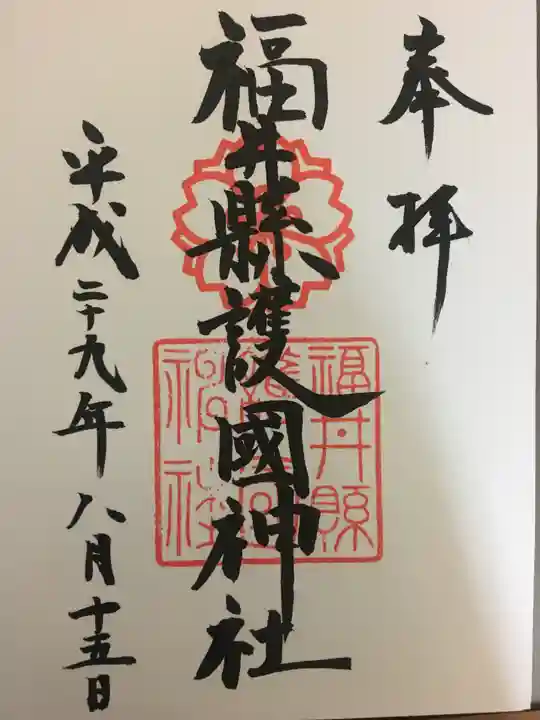 奉拝
福井縣護國神社
福井縣護國神社
平成二十九年八月十五日